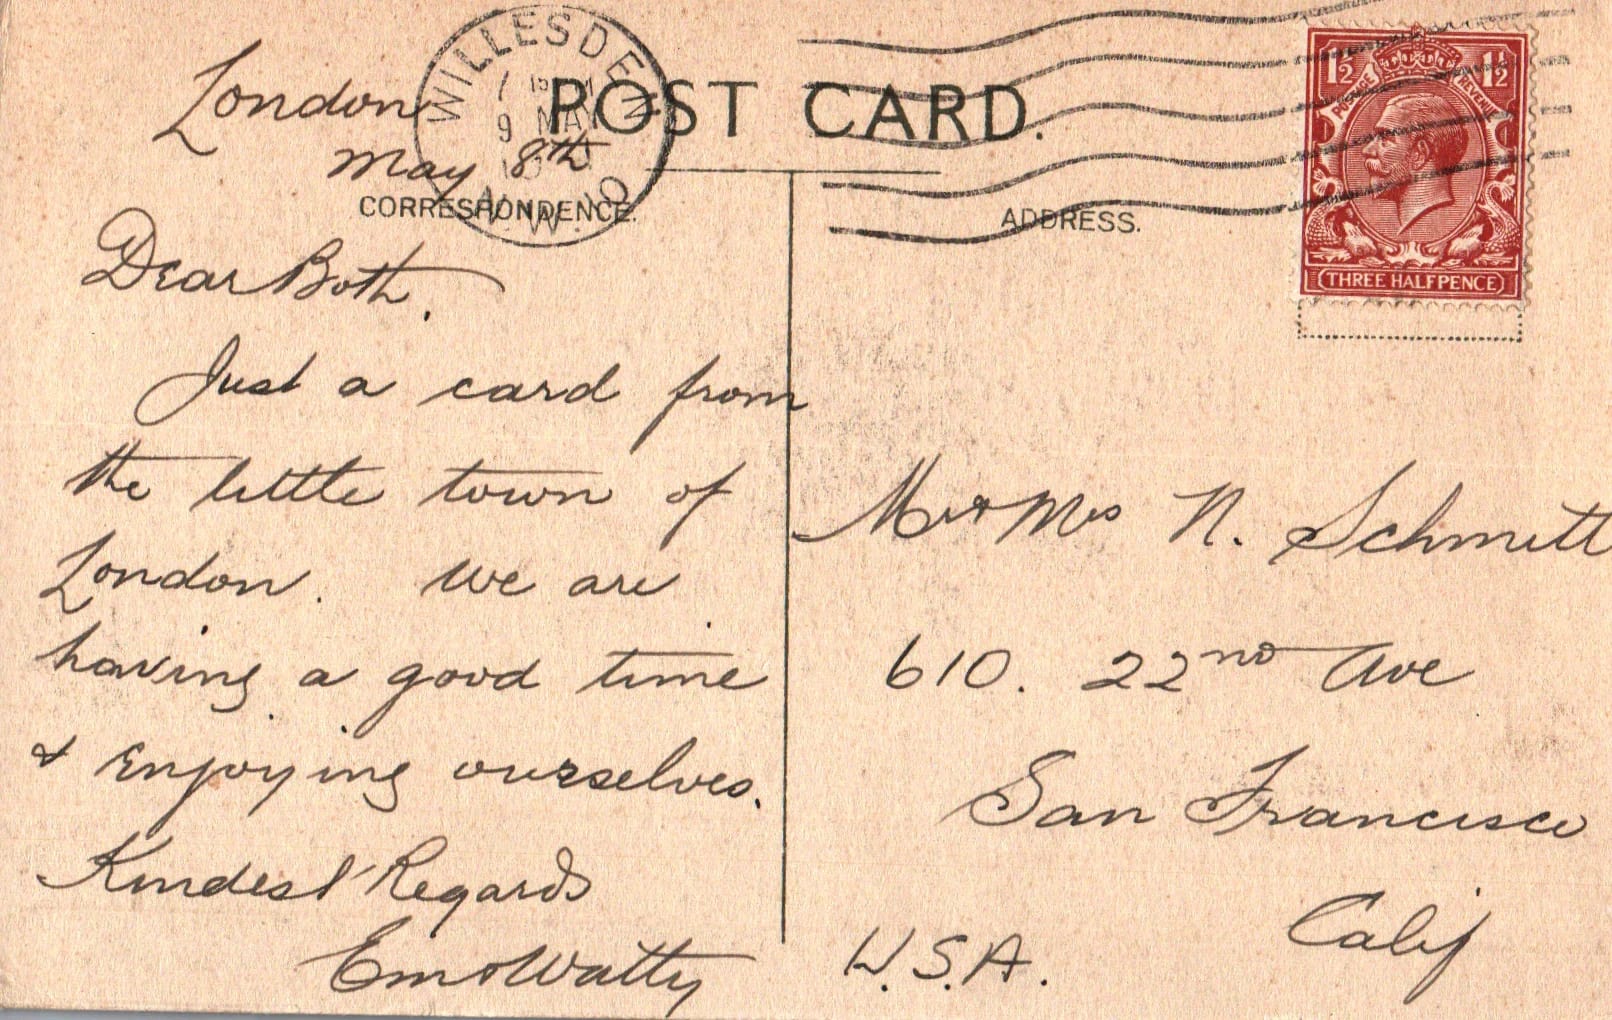 WILLESDEN
9 MAY
N.W.10
POST CARD.
1½ 1½
POSTAGE REVENUE
THREE HALFPENCE
CORRESPONDENCE.
ADDRESS.
London
May 8th
Dear Both,
Just a card from
the little town of
London. We are
having a good time
& enjoying ourselves.
Kindest Regards
Em & Watty
Mr & Mrs N. Schmitt
610. 22nd Ave
San Francisco
Calif
U.S.A.